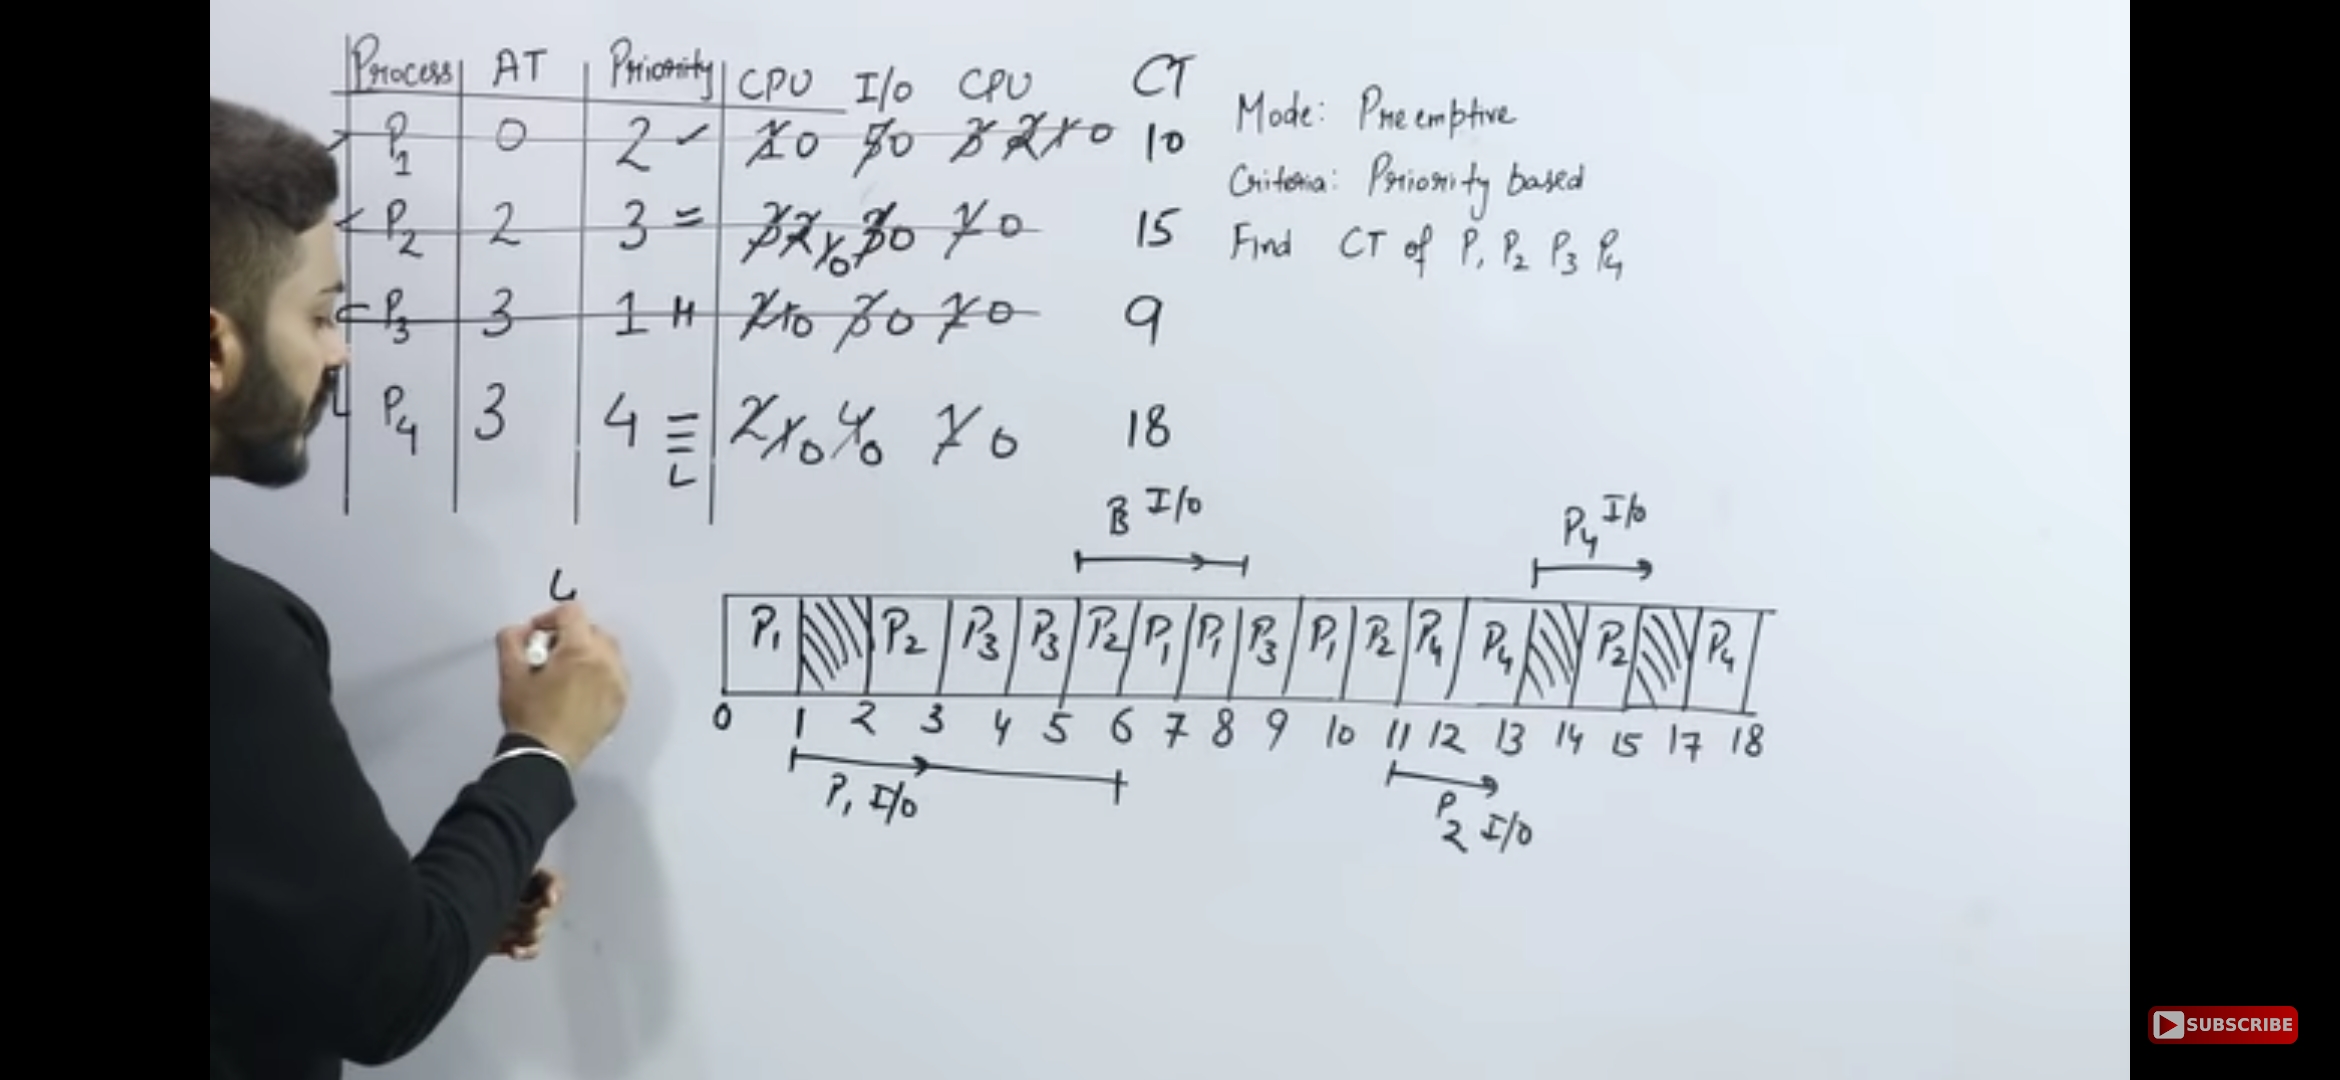 Process AT Priority CPU I/O CPU CT
P1 0 2 ✓ 1 0 5 0 3 2 1 0 10
P2 2 3 = 3 2 1 0 3 0 1 0 15
P3 3 1 H 2 1 0 3 0 1 0 9
P4 3 4 ≡ 2 1 0 4 0 1 0 18
L
Mode: Preemptive
Criteria: Priority based
Find CT of P1 P2 P3 P4
I/O
P4 I/O
P1 P2 P3 P3 P2 P1 P1 P3 P1 P2 P4 P4 P2 P4
0 1 2 3 4 5 6 7 8 9 10 11 12 13 14 15 17 18
P1 I/O
P2 I/O
SUBSCRIBE